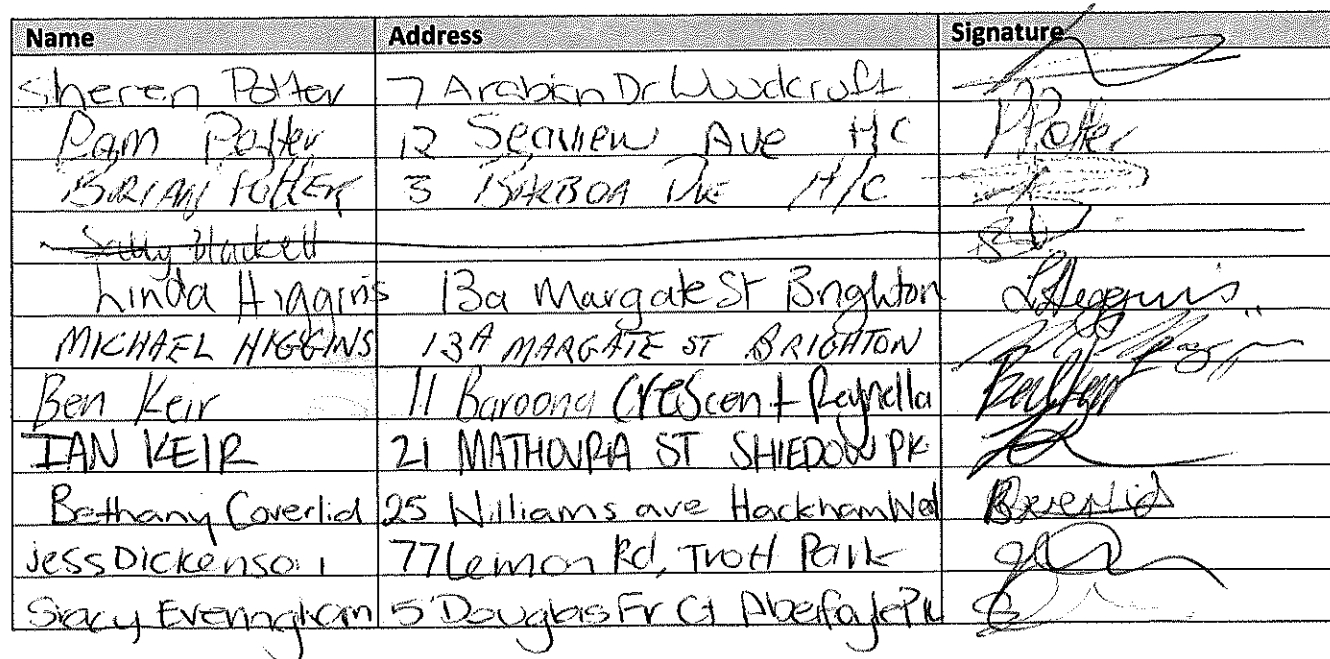 Name Address Signature
Sheren Potter 7 Arabian Dr Woodcroft
Pam Potter 12 Seaview Ave HC PPotter
BRIAN POTTER 3 BALBOA DVE H/C
Sally Blackett
Linda Higgins 13a Margate St Brighton LHiggins
MICHAEL HIGGINS 13A MARGATE ST BRIGHTON
Ben Keir 11 Baroona Crescent Reynella Ben Keir
IAN KEIR 21 MATHOURA ST SHIEDOW PK
Bethany Coverlid 25 Williams ave Hackham West BCoverlid
jess Dickenson 77 Lemon Rd, Trott Park
Stacy Everingham 5 Douglas Fr Ct Aberfoyle Pk